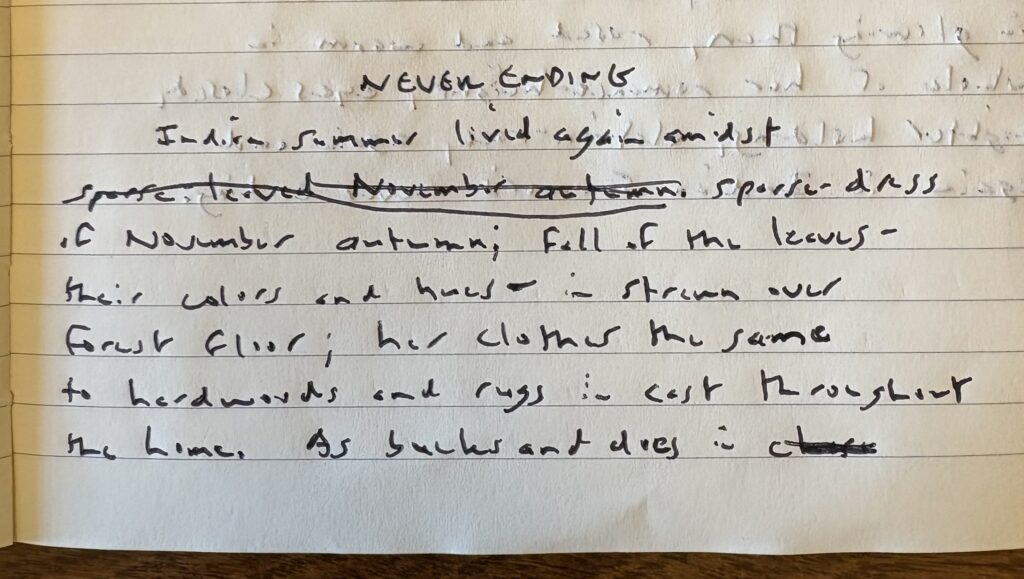 NEVER ENDING
Indian summer lived again amidst
sparse-leaved November autumn. sparse-dress
of November autumn; fall of the leaves-
their colors and hues - in strewn over
forest floor; her clothes the same
to hardwoods and rugs in cast throughout
the home. As bucks and does in